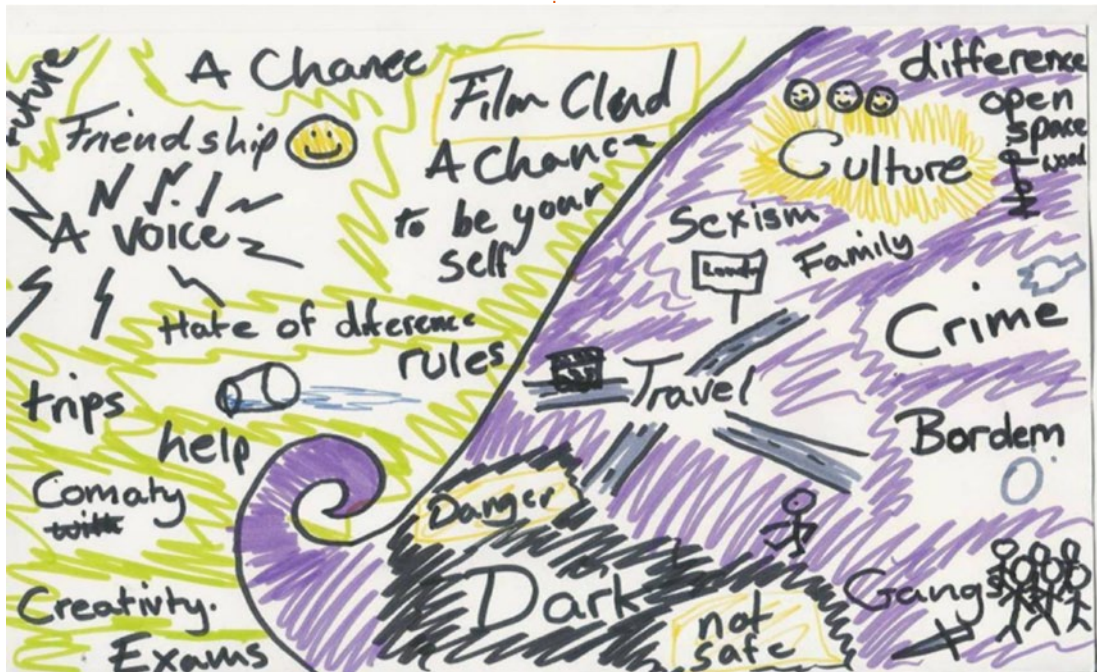 future
A Chance
Film Clud
Friendship
A Chance
to be your
self
A voice
Hate of diference
rules
trips
help
Comaty
with
Creativity.
Exams
difference
open
space
Culture
Sexism
Family
Crime
Travel
Bordem
Danger
Dark
Gangs
not
safe